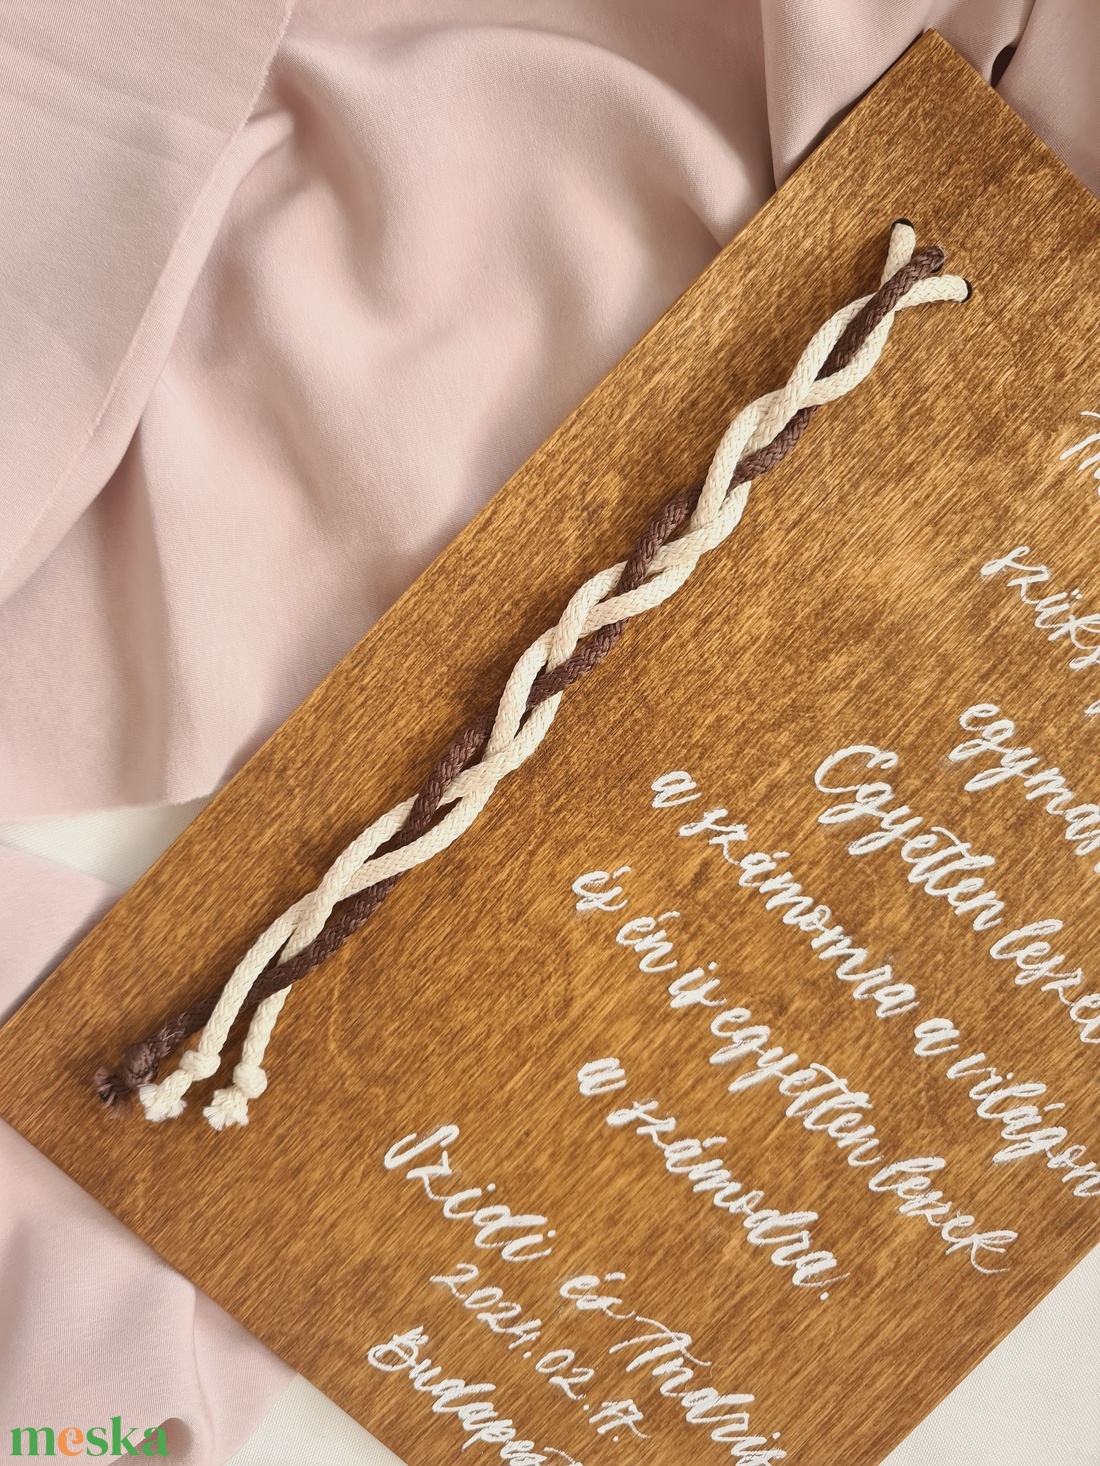 egymás
Egyetlen leszel
a számomra a világon
és én is egyetlen leszek
a számodra.
Szidi és Andris
2024.02.17.
Budapest
meska